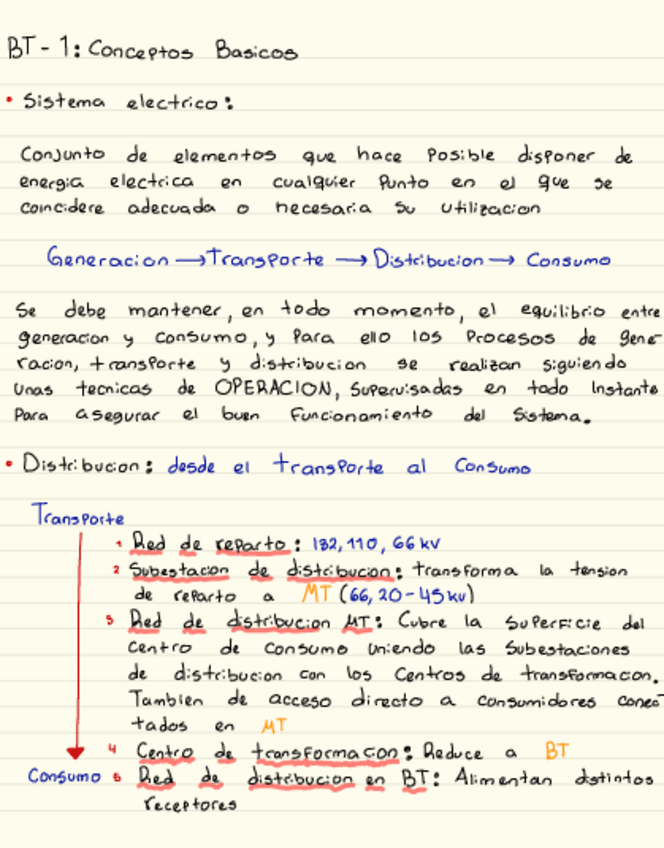 BT-1: Conceptos Basicos
• Sistema electrico:
Conjunto de elementos que hace posible disponer de
energia electrica en cualquier punto en el que se
coincidere adecuada o necesaria su utilizacion
Generacion → Transporte → Distribucion → Consumo
Se debe mantener, en todo momento, el equilibrio entre
generacion y consumo, y para ello los procesos de gene-
racion, transporte y distribucion se realizan siguiendo
unas tecnicas de OPERACION, supervisadas en todo instante
para asegurar el buen funcionamiento del sistema.
• Distribucion: desde el transporte al consumo
Transporte
1 Red de reparto: 132, 110, 66 kv
2 Subestacion de distribucion: transforma la tension
de reparto a MT (66, 20-45kv)
3 Red de distribucion MT: Cubre la superficie del
centro de consumo uniendo las subestaciones
de distribucion con los centros de transformacion.
Tambien de acceso directo a consumidores conec-
tados en MT
4 Centro de transformacion: Reduce a BT
Consumo 5 Red de distribucion en BT: Alimentan distintos
receptores